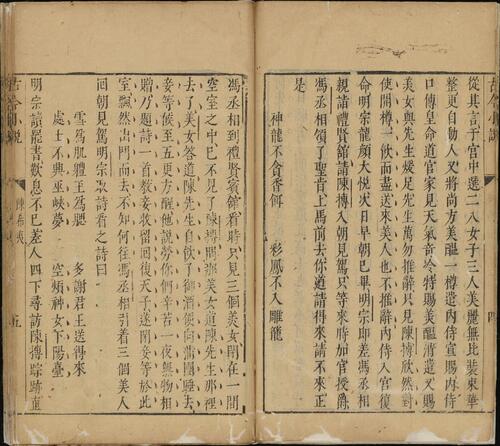 從其言于宮中選二八女子三人美麗無比裝束華
整更自動人又將尚方美醞一樽遣內侍宣賜內侍
口傳皇命道官家見天氣奇冷特賜美醞消遣又賜
美女與先生煖足先生萬勿推辭只見陳摶欣然對
使開樽一飲而盡送來美人也不推辭內侍入宮復
命明宗龍顏大悅次日早朝已畢明宗即差馮丞相
親詣禮賢館請陳摶入朝見駕只等來時加官授爵
馮丞相領了聖旨上馬前去你道請得來請不來正
是
神龍不貪香餌 彩鳳不入雕籠
馮丞相到禮賢賓館看時只見三個美女閉在一間
空室之中已不見了陳摶問那美女道陳先生那裡
去了美女答道陳先生自飲了御酒便向蒲團睡去
妾等候至五更方醒他說勞你們辛苦一夜無物相
贈乃題詩一首教妾收留回復天子遂閉妾等於此
室飄然出門而去不知何往馮丞相引着三個美人
回朝見駕明宗取詩看之詩曰
雪為肌體玉為腮 多謝君王送得來
處士不興巫峽夢 空煩神女下陽臺
明宗讀罷書歎息不已差人四下尋訪陳摶踪跡直
古今小說 陳希夷 五